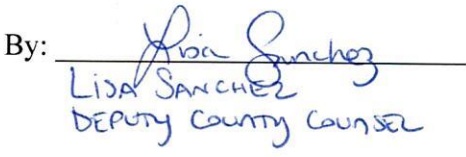 By: Lisa Sanchez
LISA SANCHEZ
DEPUTY COUNTY COUNSEL